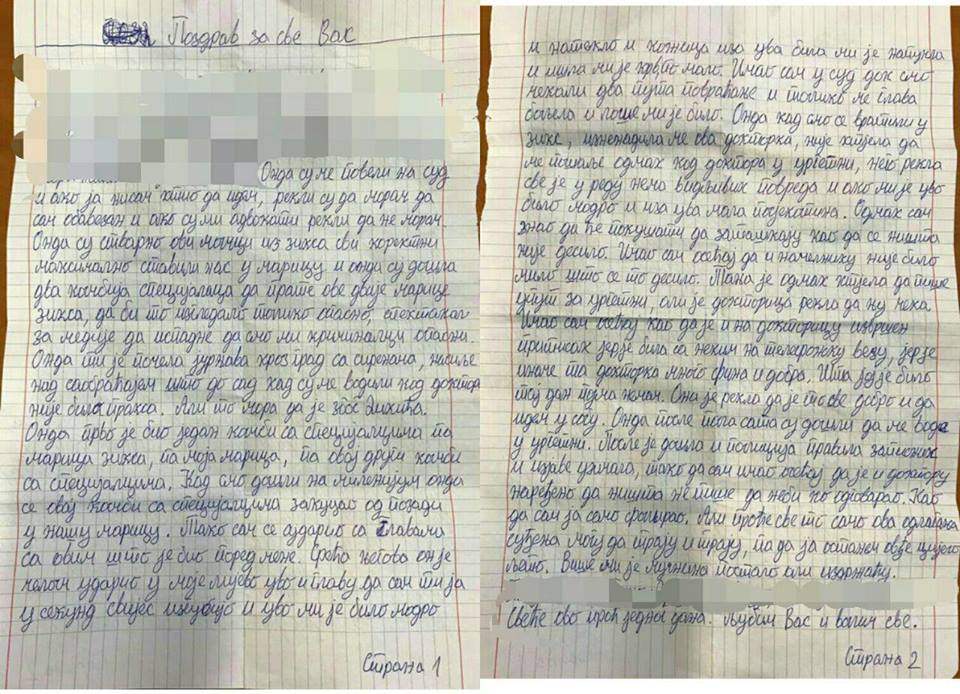 Поздрав за све Вас
Онда су ме повели на суд
и ако ја нисам хтио да идем, рекли су да морам да
сам обавезан и ако су ми адвокати рекли да не морам.
Онда су стварно ови момци из зикса сви коректни
максимално ставили нас у марицу и онда су дошла
два комбија специјалаца да прате ове двије марице
зикса, да би то изгледало толико опасно, спектакал
за медије да испадне да смо ми криминалци опасни.
Онда ти је почела журњава кроз град са сиренама, насиље
над саобраћајем што до сад кад су ме водили код доктора
није било пракса. Али то мора да је због
Онда прво је био један комби са специјалцима па
марица зикса, па моја марица, па овај други комби
са специјалцима. Кад смо дошли на милениjум онда
се овај комби са специјалцима закуцао од позади
у нашу марицу. Тако сам се ударио са главама
са овим што је био поред мене. Срећа његова он је
челом ударио у моје лијево уво и главу да сам ти ја
у секунд свијес изгубио и уво ми је било модро
Страна 1
и натекло и кожица иза ува била ми је напукла
и ишла ми је крв по мало. Имао сам у суд док смо
чекали два пута повраћање и толико ме глава
бољела и лоше ми је било. Онда кад смо се вратили у
зикс, изненадила ме ова докторка, није хтјела да
ме пошаље одмах код доктора у ургетни, него рекла
све је у реду нема видљивих повреда и ако ми је уво
било модро и иза ува мала посјекотина. Одмах сам
знао да ће покушати да заташкају као да се ништа
није десило. Имао сам осећај да и начелнику није било
мило што се то десило. Та је одмах хтјела да пише
упут за ургетни, али је докторица рекла да му чека.
Имао сам осећај као да је и на докторицу извршен
притисак јер је била са неким на телефонску везу, јер је
иначе та докторка много фина и добра. Шта јој је било
тој дан немам. Она је рекла да је то све добро и да
идем у собу. Онда после пола сата су дошли да ме воде
у ургетни. После је дошла и полиција правила записник
и изјаве узимала, тако да сам имао осећај да је и доктору
наређено да ништа не пише да неби ко одговарао. Као
да сам ја само фолирао. Али проће све то само ова одлагања
суђења могу да трају и трају, па да ја останем овде цијело
љето. Више ми је мучнина постало али издржаћу.
Свеће ово проћ једног дана. Љубим Вас и волим све.
Страна 2